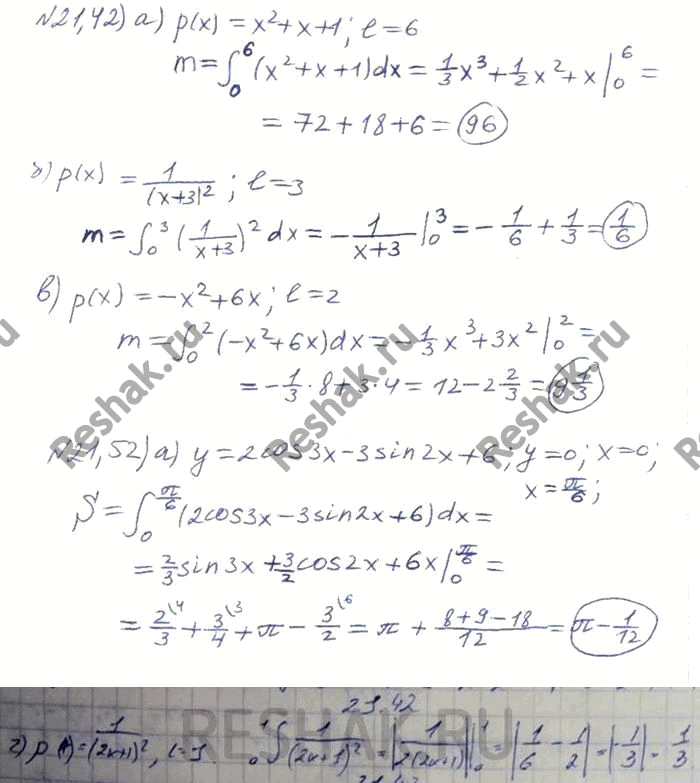 №21,42) а) p(x) = x²+x+1; ℓ=6
m = ∫₀⁶ (x²+x+1)dx = 1/3 x³ + 1/2 x² + x |₀⁶ =
= 72+18+6 = 96
б) p(x) = 1/(x+3)²; ℓ=3
m = ∫₀³ (1/(x+3))² dx = -1/(x+3) |₀³ = -1/6 + 1/3 = 1/6
в) p(x) = -x²+6x; ℓ=2
m = ∫₀² (-x²+6x)dx = -1/3 x³ + 3x² |₀² =
= -1/3 · 8 + 3·4 = 12 - 2 2/3 = 9 1/3
Reshak.ru Reshak.ru Reshak.ru
№21,52) а) y = 2cos3x - 3sin2x + 6; y=0; x=0;
x = π/6;
S = ∫₀^(π/6) (2cos3x - 3sin2x + 6)dx =
= 2/3 sin3x + 3/2 cos2x + 6x |₀^(π/6) =
= 2/3 \4 + 3/4 \3 + π - 3/2 \6 = π + (8+9-18)/12 = π - 1/12
21.42
RESHAK.RU
г) p = 1/(2x+1)², ℓ=1. ₀¹∫ 1/(2x+1)² = |1/2(2x+1)| |₀¹ = |1/6 - 1/2| = |-1/3| = 1/3